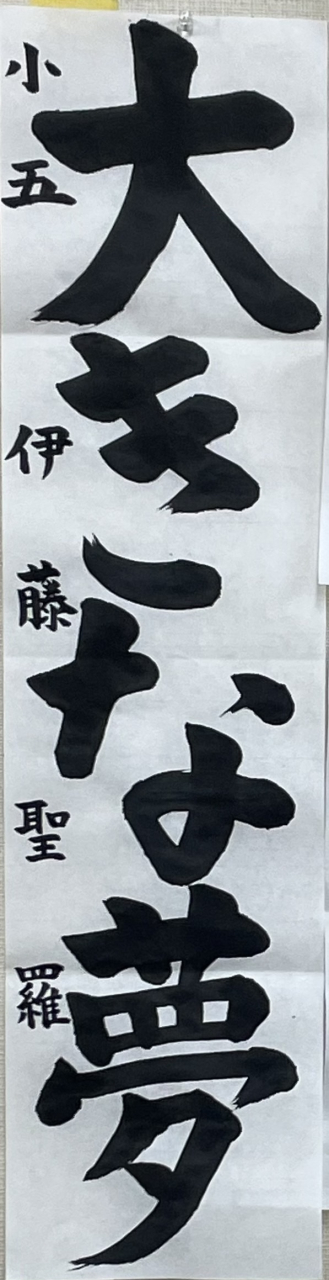 大きな夢
小五 伊藤聖羅